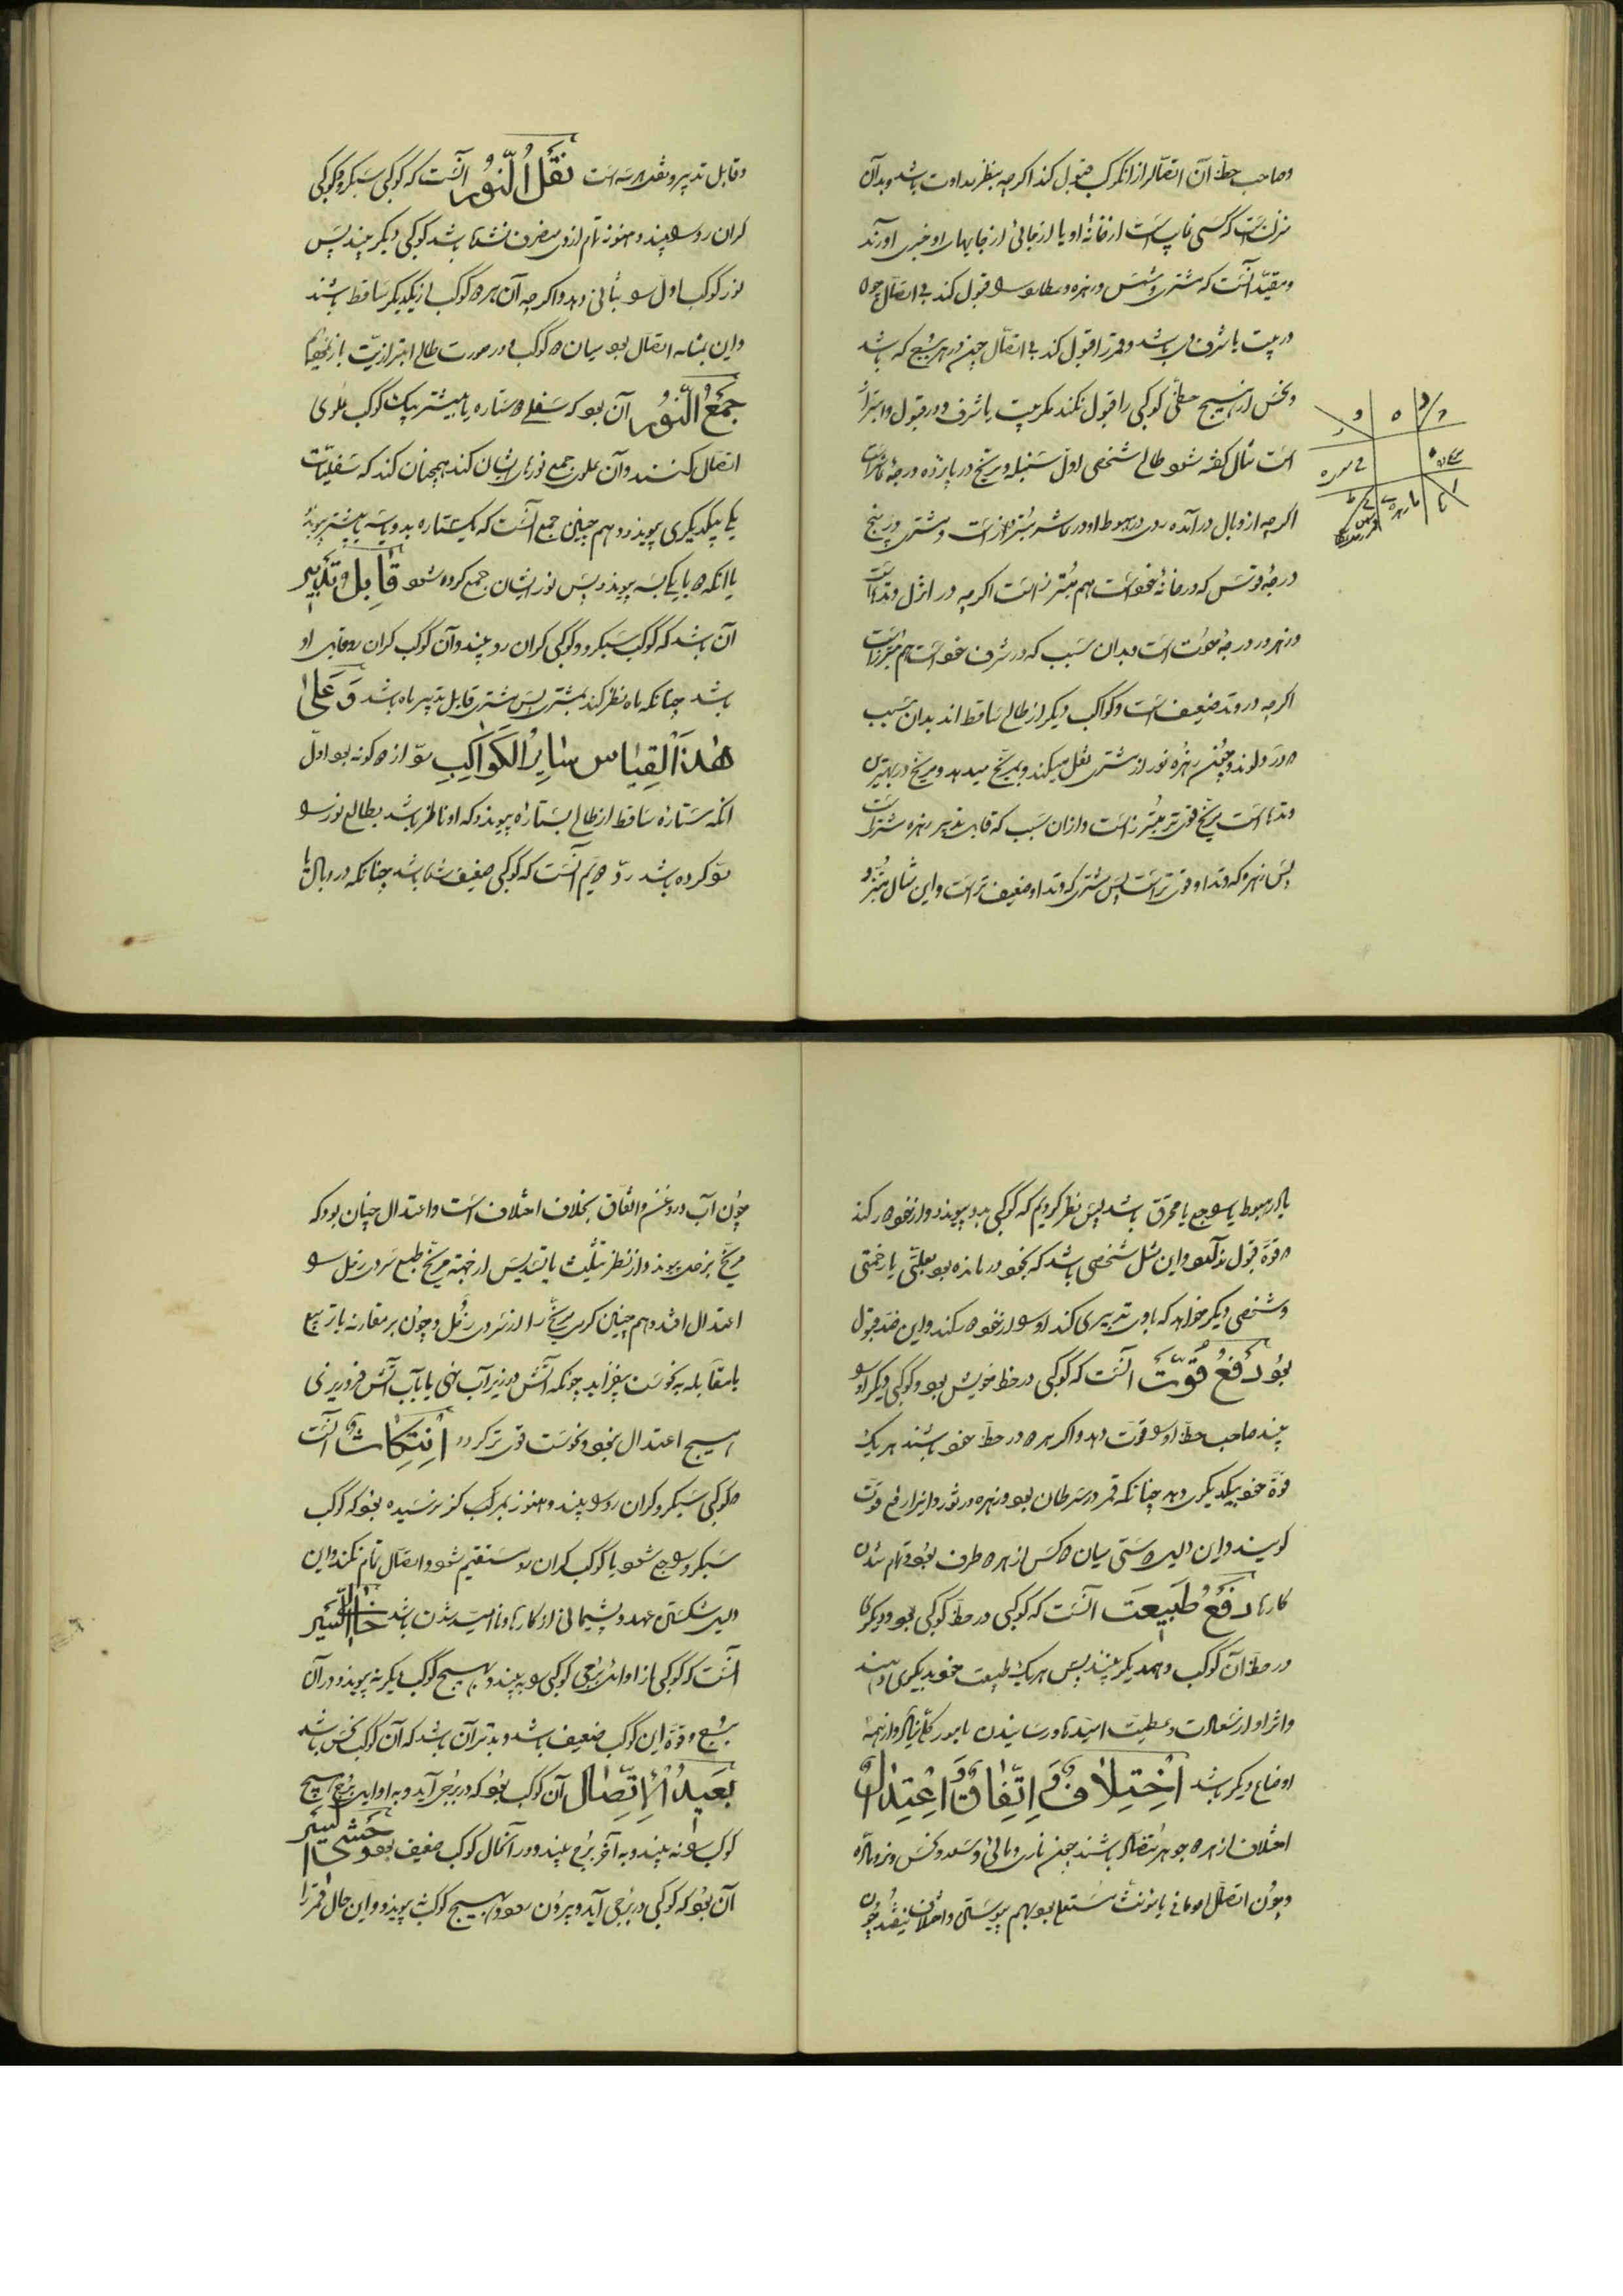 وصاحب حظّ آن اتصال از ان کوکب قبول کند اکرچه بنظر عداوت باشد وبدآن
منزلست که کسی ناپ است از خانهٔ او یا از جائی از جایهای او خبری آورند
ومقیّد آنست که مشتری وشمس وزهره وعطارد قبول کند بی اتصال چون
در بیت یا شرف وی باشد وقمر را قبول کند بی اتصال چنین در هر برج که باشد
ونحس از هیچ حظّی کوکبی را قبول نکند مکر بیت یا شرف ودر قبول وابتزاز
است مثال کفته شود طالع شخصی اول سنبله ومریخ در پانزده درجهٔ
اکرچه از وبال درآمده در هبوط اودر عاشر مبتز است ومشتری در پنج
درجهٔ قوس که در خانهٔ خود است هم مبتز است اکرچه در انزل وتدهاست
وزهره در درجهٔ حوت است وبدان سبب که در شرف خود است هم مبتز است
اکرچه در وتد ضعیف است وکواکب دیکر از طالع ساقط اند بدان سبب
زهره نور از مشتری نقل میکند وبمریخ میدهد ومریخ در بهترین
وتدها است مریخ قوی تر مبتز است وازان سبب که قابل تدبیر زهره
پس زهره که وتد او قوی تر است پس مشتری که وتد او ضعیف تر است واین مثال
وقابل تدبیر ونقل است نَقلُ النُّورِ آنست که کوکبی سبکرو کوکبی
کران رو بیند وهنوز تمام ازوی منصرف نشده باشد کوکبی دیکر بیند پس
نور کوکب اول بثانی دهد واکرچه آن هردو کوکب از یکدیکر ساقط باشند
واین بمثابه اتصال بود میان دو کوکب ودر صورت طالع
جَمعُ النُّورِ آن بود که سفلی دو ستاره یا بیشتر بیک کوکب علوی
اتصال کنند وآن علوی جمع نورهای ایشان کند همچنان کند که سفلیّات
یکی بیکدیکری پیوندد وهم چنین جمع آنست که یک ستاره بدو یا سه یا بیشتر پیوندد
یا آنکه دو با یکی یا سه پیوندد پس نور ایشان جمع کرده شود قابل تدبیر
آن باشد که کوکب سبکرو وکوکبی کران رو بیند وآن کوکب کران رو قابل او
باشد چنانکه ماه نظر کند بمشتری پس مشتری قابل تدبیر ماه باشد وَعَلیٰ
هٰذَا القِیَاس سَایِرُ الکَوَاکِبِ ردّ از دو کونه بود اول
آنکه ستارهٔ ساقط از طالع بستارهٔ پیوندد که او ناظر باشد بطالع نور
ردّ کرده باشد ردّ دویم آنست که کوکبی ضعیف باشد چنانکه در وبال یا
یا در هبوط یا راجع یا محترق باشد پس نظر کردیم که کوکبی بدو پیوندد و از خود دور کند
وقوة قبول ندارد واین مثل شخصی باشد که بخود درمانده بود بعلتی یا زحمتی
وشخصی دیکر خواهد که با وی تدبیری کند او را از خود دور کند واین ضد قبول
بود دَفعُ قُوَّت آنست که کوکبی در حظ خویش بود وکوکبی دیکر او را
بیند صاحب حظ او را قوت دهد واکر هردو در حظ خود باشند هریک
قوة خود بیکدیکر دهد چنانکه قمر در سرطان بود وزهره در ثور واین را دفع قوت
کویند واین دلیل دوستی میان دو کس از هردو طرف بود وتمام شدن
کارها دَفعُ طَبیعَت آنست که کوکبی در حظ کوکبی بود ودیکر
در حظ آن کوکب وهمدیکر بینند پس هریک طبیعت خود بدیکری دهند
واثر او از سعادت وعطیت امیدها ورسانیدن بامور
اوضاع دیکر باشد اِختِلافٌ وَ اِتِّفَاقٌ وَ اعتِدَالٌ
اختلاف از هردو جوهر متضاد باشند چون ناری ومائی وسعد ونحس ونر وماده
وچون اتصال
چون آب در روغن واتفاق بخلاف اختلاف است واعتدال چنان بود که
مریخ بزحل پیوندد از نظر تثلیث یا تسدیس از جهة مریخ طبع سردی زحل
اعتدال افتد وهم چنین کرمی مریخ را از سردی زحل وچون بر مقارنه یا تربیع
یا مقابله به نحوست بیفزاید چونکه آتش در زیر آب نهی یا بآب آتش فرو ریزی
هیچ اعتدال نبود ونحوست قوی تر کردد اِنتِکَاث آنست
که کوکبی سبکرو کران رو را بیند وهنوز بمرکز نرسیده بود که کوکب
سبکرو راجع شود یا کوکب کران رو مستقیم شود واتصال تمام نکند واین
دلیل شکستن عهد وپشیمانی از کارها ونا امید شدن باشد خالی السَّیر
آنست که کوکبی از اوائل برجی کوکبی را بیند وبهیچ کوکب دیکر نه پیوندد ودر آن
برج وقوة این کوکب ضعیف باشد وبدتر آن باشد که آن کوکب نحس باشد
بَعیدُ الاِتِّصال آن کوکب بود که در برجی آید وبه اوایل برج هیچ
کوکب را نه بیند وبه آخر برج بیند ودر آنحال کوکب ضعیف بود وَحشیُّ السَّیر
آن بود که کوکبی در برجی آید وبیرون رود وبهیچ کوکب نه پیوندد واین حال قمر را